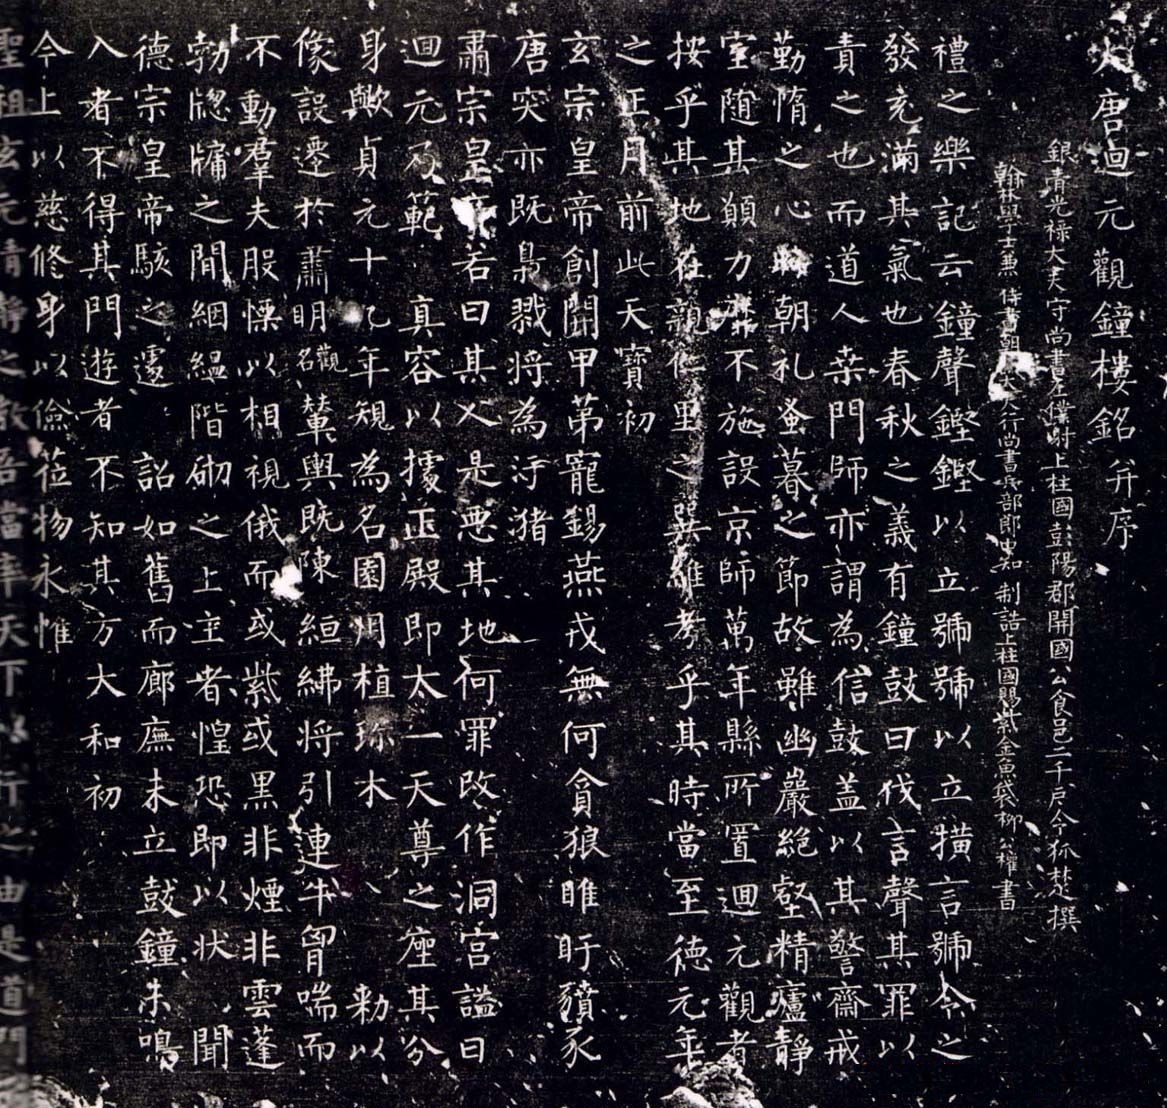 大唐迴元觀鐘樓銘并序
銀青光祿大夫守尚書左僕射上柱國彭陽郡開國公食邑二千戶令狐楚撰
翰林學士兼侍書朝大夫行尚書兵部郎中知制誥上柱國賜紫金魚袋柳公權書
禮之樂記云鐘聲鏗鏗以立號號以立橫言號令之
發充滿其氣也春秋之義有鐘鼓曰伐言聲其罪以
責之也而道人桒門師亦謂為信鼓盖以其警齋戒
勤惰之心時朝礼蚤暮之節故雖幽巖絕壑精廬靜
室隨其願力靡不施設京師萬年縣所置迴元觀者
按乎其地在親仁里之巽維考乎其時當至德元年
之正月前此天寶初
玄宗皇帝創開甲第寵錫燕戎無何貪狼睢盱豶豕
唐突亦既梟戮將為洿瀦
肅宗皇帝若曰其人是惡其地何罪改作洞宮謚曰
迴元乃範真容以據正殿即太一天尊之座其分
身歟貞元十九年規為名園用植珎木敕以
像設遷於肅明觀名輦輿既陳絙紼將引連牛胷喘而
不動羣夫股慄以相視俄而或紫或黑非煙非雲蓬
勃牎牖之間絪縕階砌之上主者惶恐即以狀聞
德宗皇帝駭之遽詔如舊而廊廡未立鼓鐘未鳴
入者不得其門遊者不知其方大和初
今上以慈修身以儉莅物永惟
聖祖玄元清靜之教吾當率天下以行之由是道門